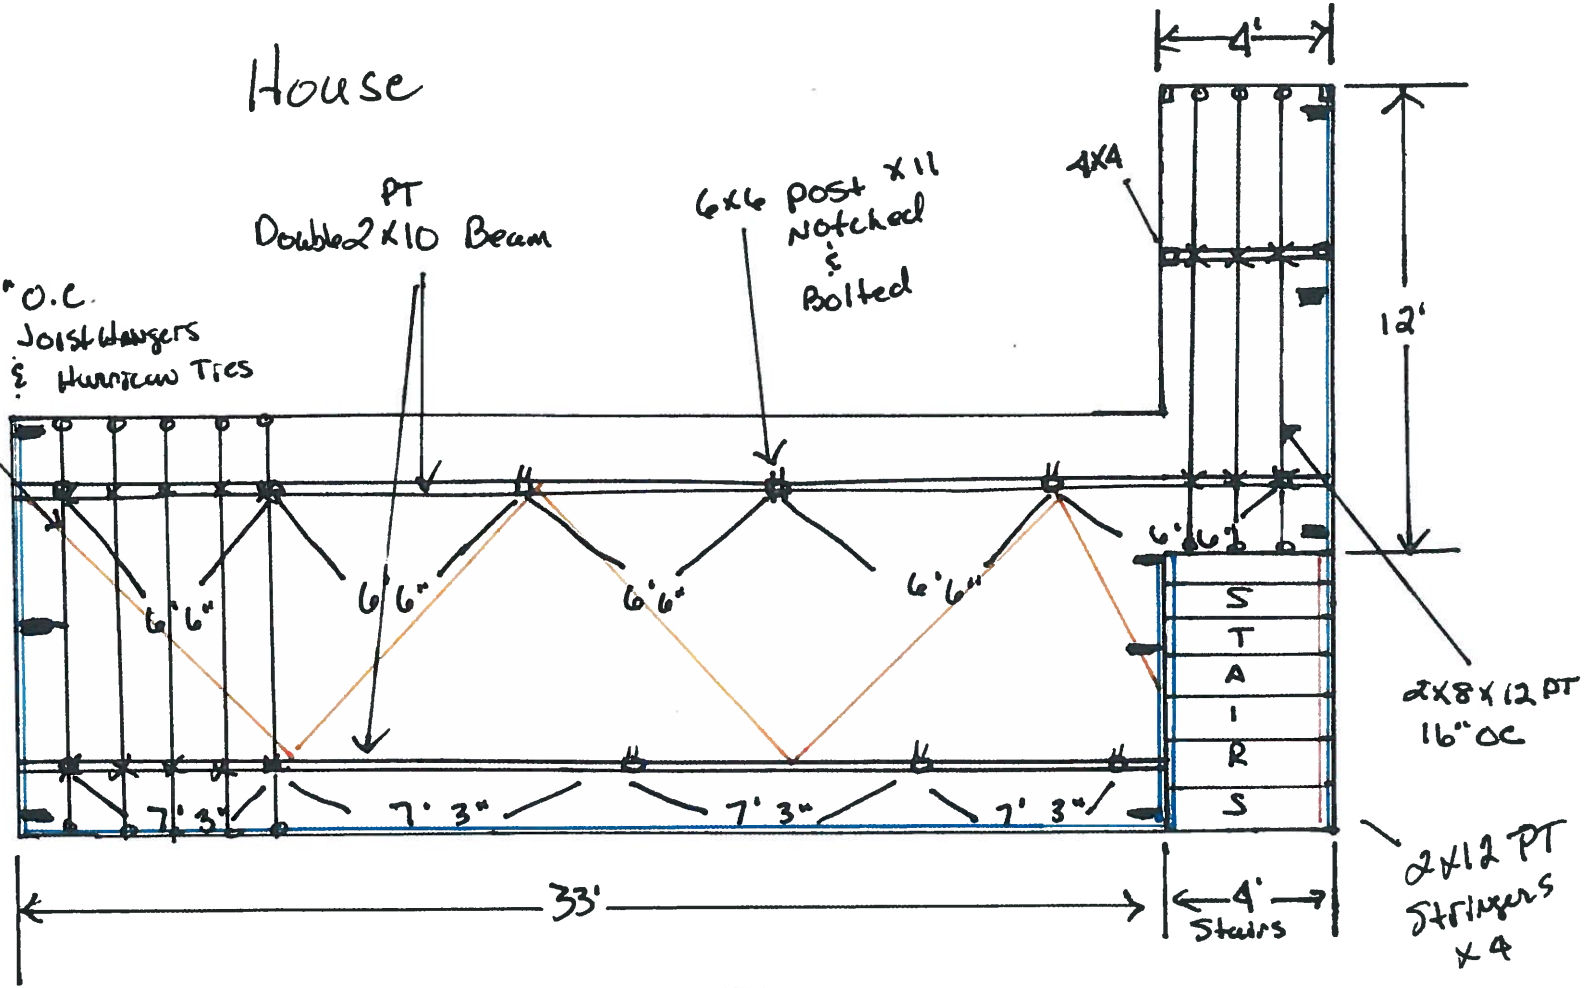 4'
House
4x4
PT
Double 2x10 Beam
6x6 Post x11
Notched
&
Bolted
" O.C.
Joist Hangers
& Hurrican Ties
12'
6' 6"
6' 6"
6' 6"
6' 6"
6' 6"
S
T
A
I
R
S
2x8x12 PT
16" OC
7' 3"
7' 3"
7' 3"
7' 3"
33'
4'
Stairs
2x12 PT
Stringers
x 4